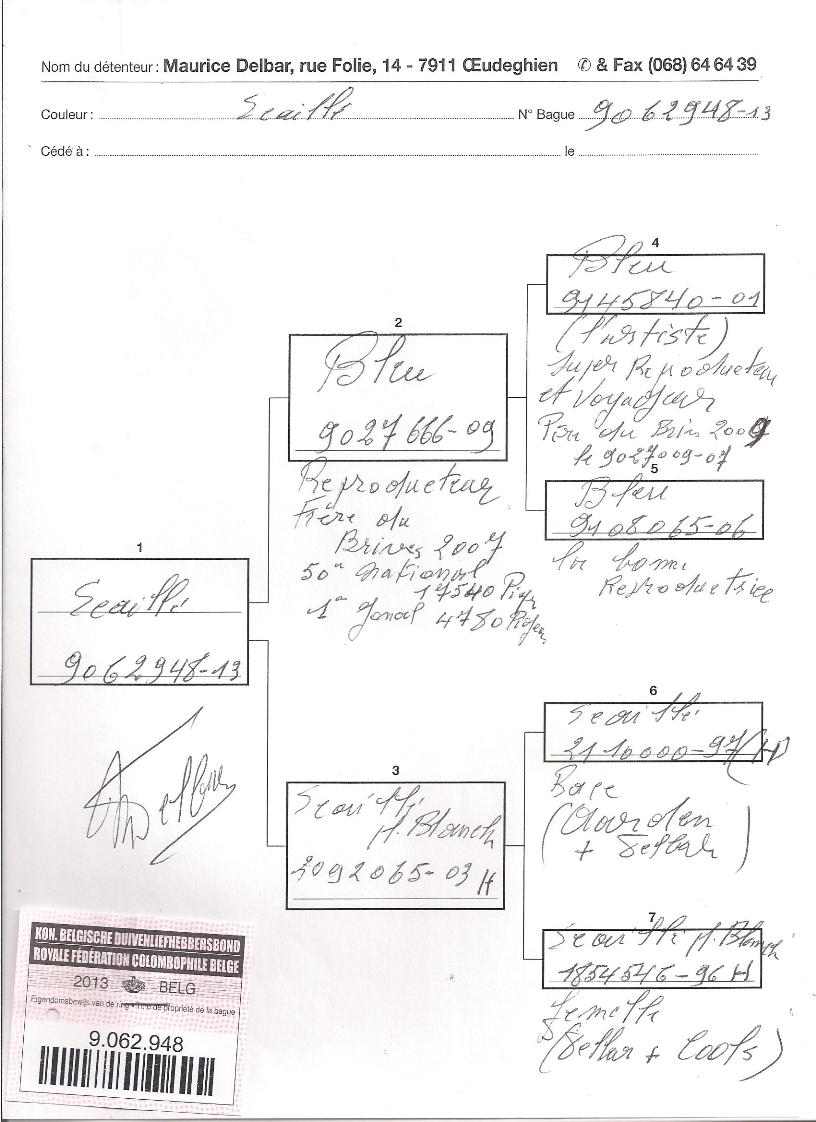 Nom du détenteur : Maurice Delbar, rue Folie, 14 - 7911 Œudeghien ✆ & Fax (068) 64 64 39
Couleur : Ecaillé N° Bague 9062948-13
Cédé à : le
4
Bleu
9145840-01
(l'artiste)
Super Reproducteur
et Voyageur
Père du Brive 2009
le 9027009-07
2
Bleu
9027666-09
Reproducteur
Frère du
Brives 2007
50e National
17540 Pige
1e Zonal 4780 Pigeon
5
Bleu
9108065-06
la bonne
Reproductrice
1
Ecaillé
9062948-13
Delbar
3
Ecaillé
pl. Blanch
2092065-03 H
6
Ecaillé
2110000-97 (H)
Base
(Aarden
+ Delbar)
7
Ecaillé pl. Blanch
1854546-96 H
Femelle
(Delbar + Cools)
KON. BELGISCHE DUIVENLIEFHEBBERSBOND
ROYALE FÉDÉRATION COLOMBOPHILE BELGE
2013 BELG
Eigendomsbewijs van de ring - Titre de propriété de la bague
9.062.948